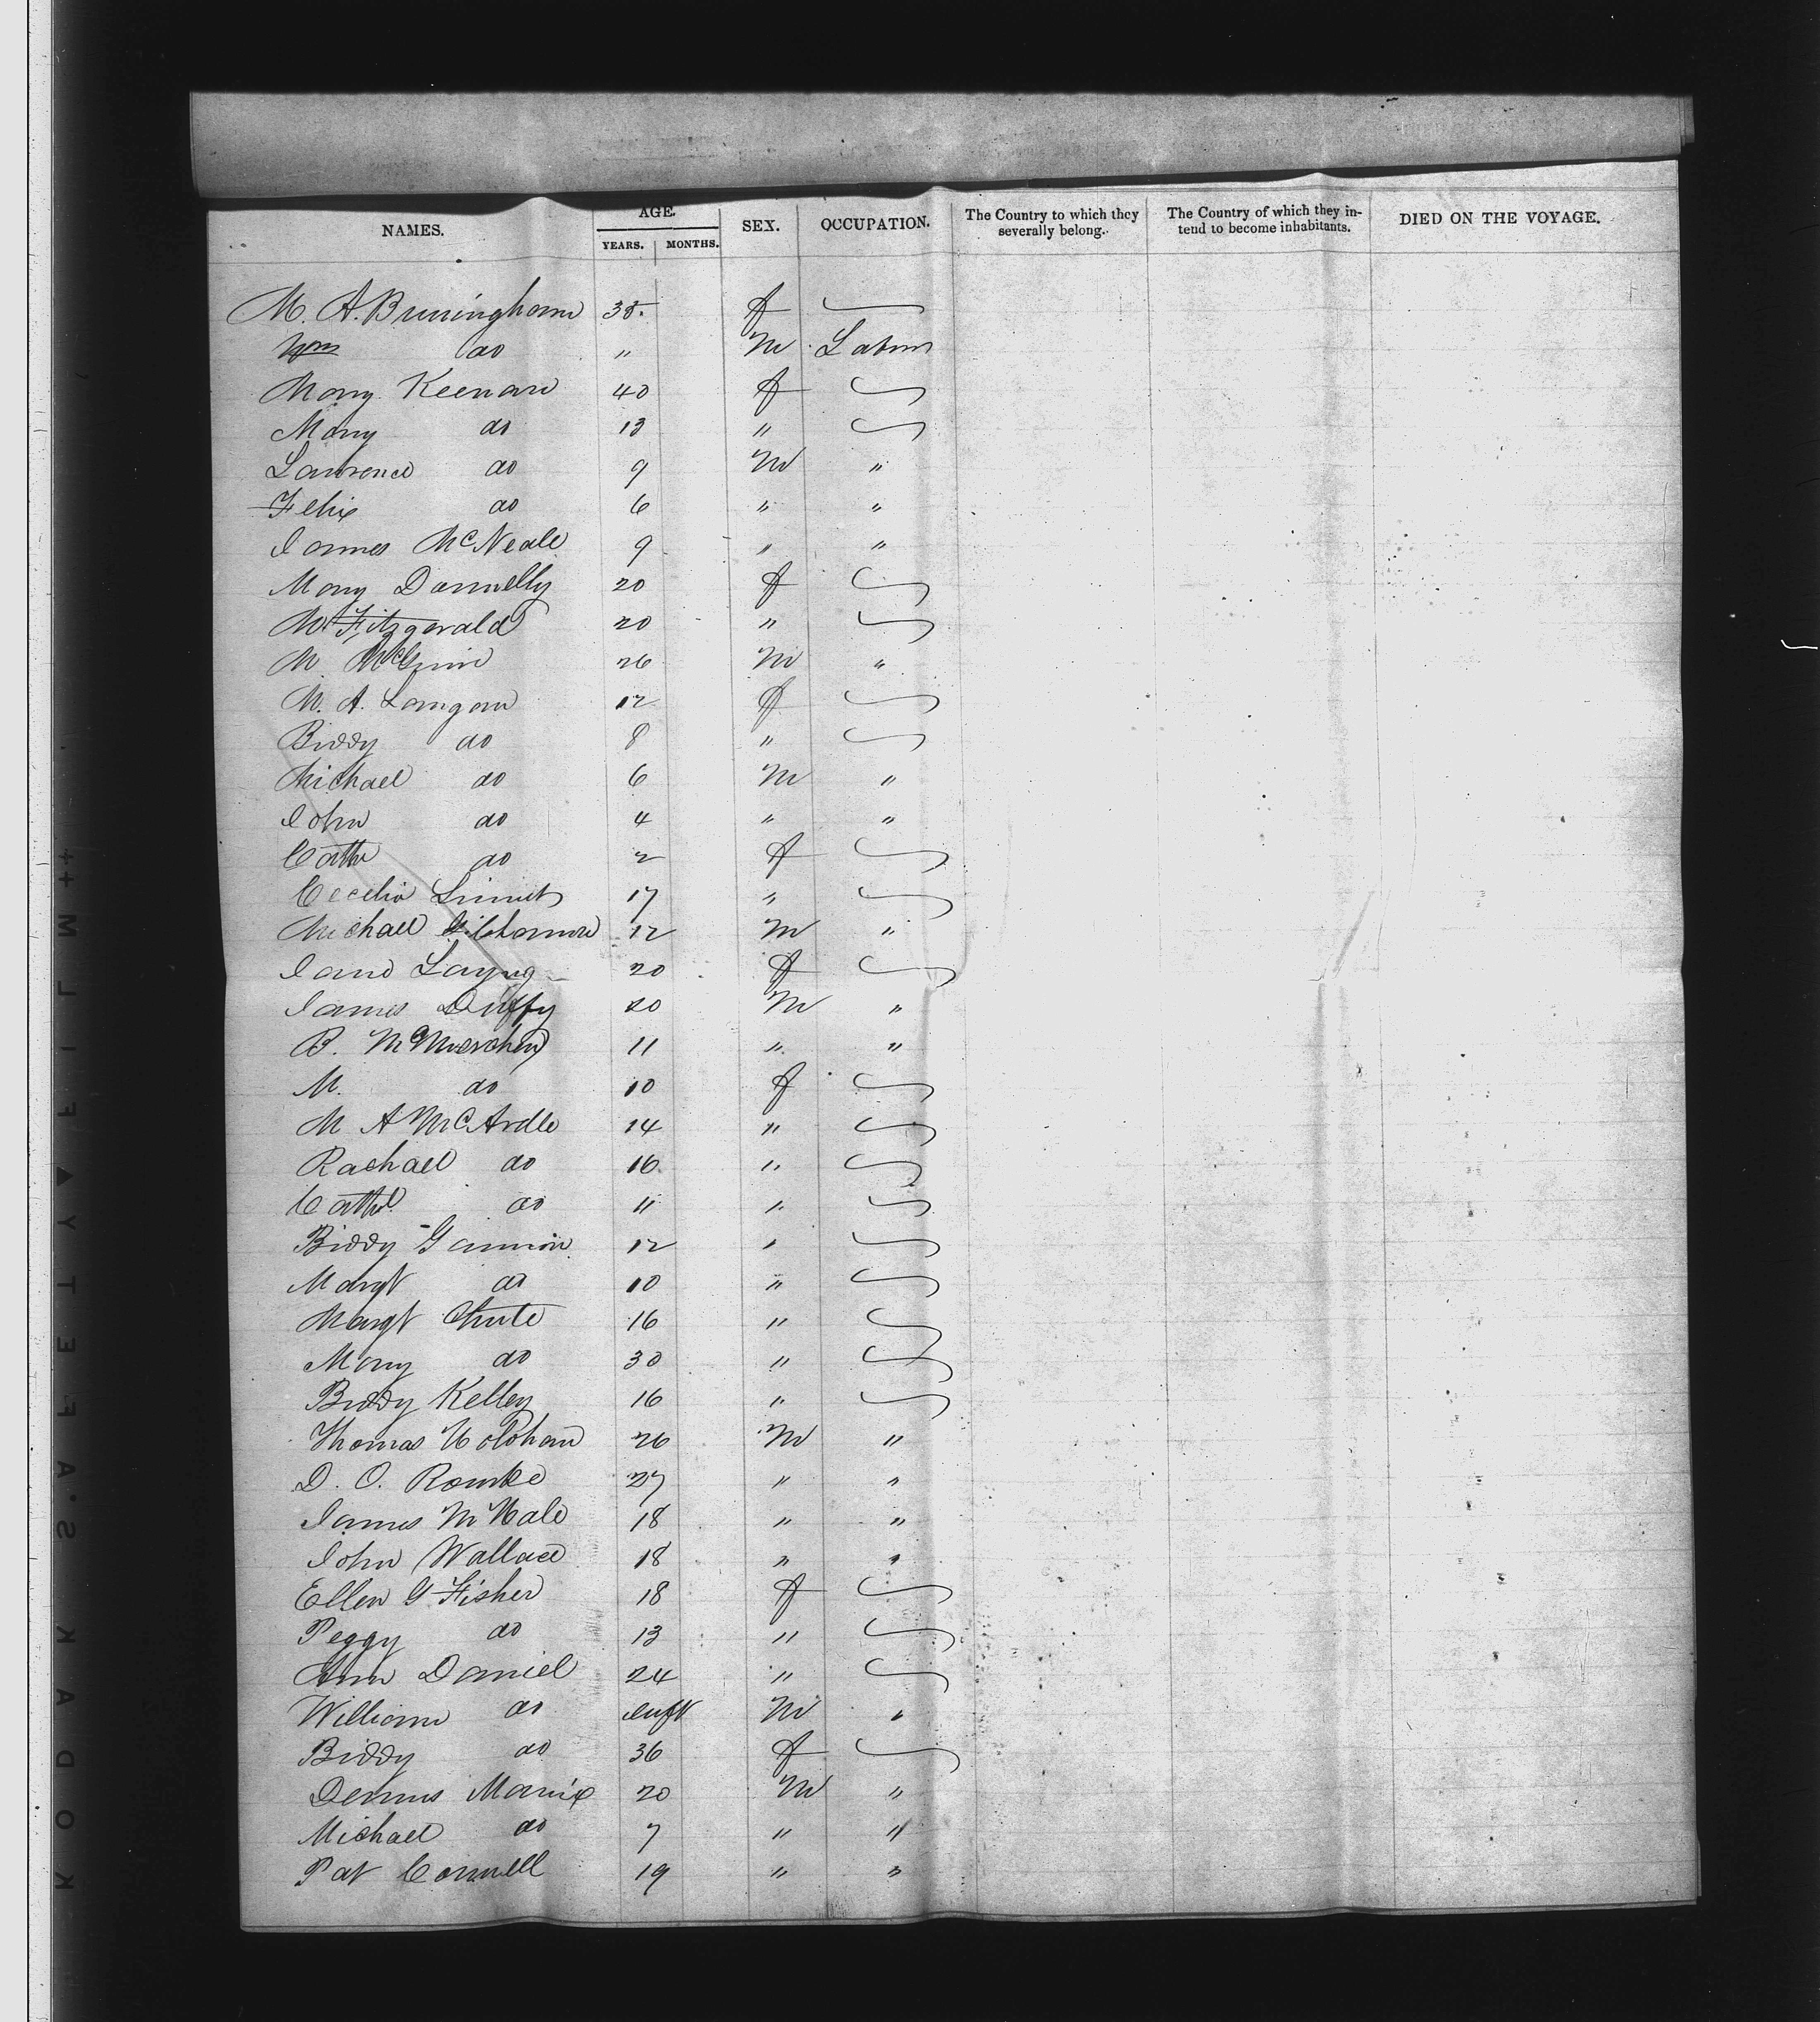 NAMES. AGE. SEX. OCCUPATION. The Country to which they severally belong. The Country of which they intend to become inhabitants. DIED ON THE VOYAGE.
YEARS. MONTHS.
M. A. Burningham 38. f
Wm do " M Labor
Mary Keenan 40 f
Mary do 13 "
Lawrence do 9 M "
Felix do 6 " "
James McNeale 9 " "
Mary Donnelly 20 f
M Fitzgerald 20 "
M. McGuin 26 M "
M. A. Langan 12 f
Biddy do 8 "
Michael do 6 M "
John do 4 " "
Cath do 2 f
Cecelia 17 "
Michael 12 M "
Jane Layng 20 f
James Duffy 20 M "
B. 11 " "
M. do 10 f
M A McArdle 14 "
Rachael do 16 "
Cath do 11 "
Biddy Gannon 12 "
Margt do 10 "
Margt Chute 16 "
Mary do 30 "
Biddy Kelley 16 "
Thomas Holohan 26 M "
D. O. Rourke 27 " "
James McHale 18 " "
John Wallace 18 " "
Ellen G Fisher 18 f
Peggy do 13 "
Ann Daniel 24 "
William do Inft M "
Biddy do 36 f
Dennis 20 M "
Michael do 7 " "
Pat Connell 19 " "
KODAK SAFETY FILM